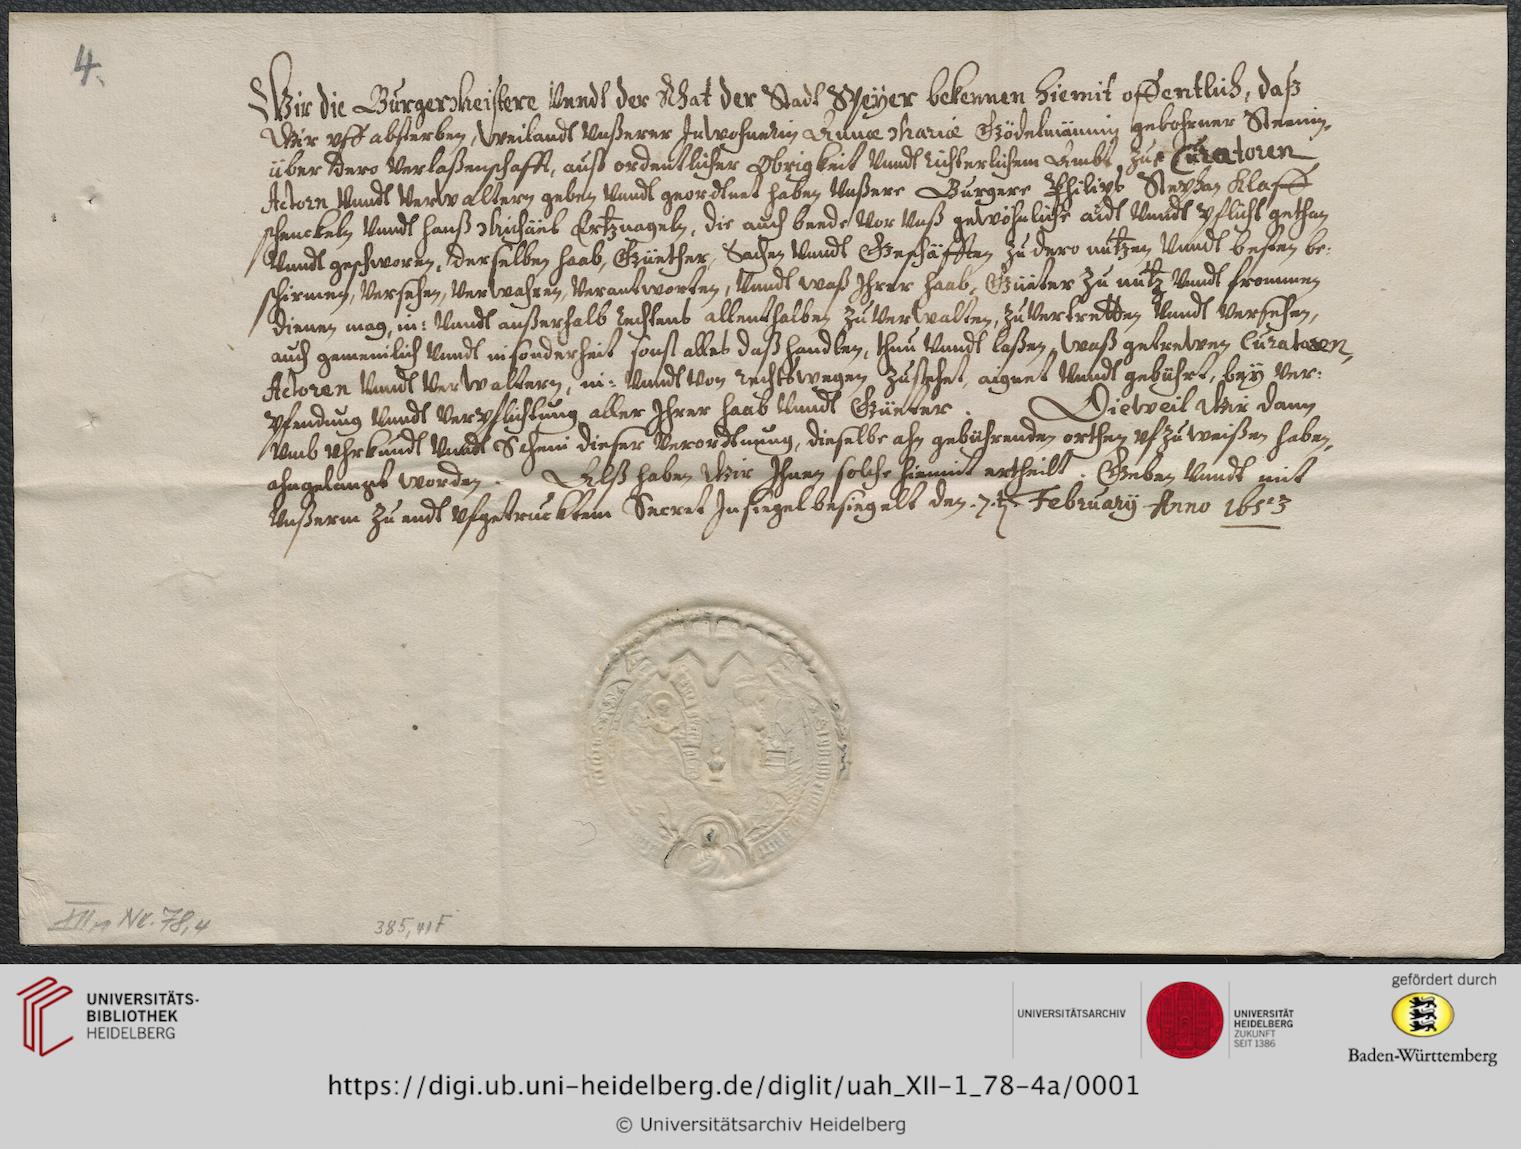 4.
Wir die Burgermeistere Vnndt der Rhat der Stadt Speyer bekennen hiemit offentlich, daß
Wir vff absterben, weilandt Vnßerer Inwohnerin Annæ Mariæ Gödelmännin gebohrner Steinin,
über dero Verlaßenschafft, auß ordentlicher Obrigkeit Vnndt richterlichem Ambt, zue Curatoren
Actorn Vnndt Verwaltern geben Vnndt geordtnet haben Vnßere Burgere Philips Stephan Klaff
schenckeln Vnndt Hanß Michäel Ertznageln, die auch beede vor Vnß gewöhnliche aidt Vnndt Pflicht gethan
Vnndt geschworen, derselben Haab, Güether, Sachen Vnndt Geschäfften zu dero nutzen Vnndt besten be:
schirmen, Versehen, Verwahren, Verantworten, Vnndt waß Ihrer Haab, Güeter zu nutz Vnndt frommen
dienen mag, in: Vnndt außerhalb rechtens allenthalben zuverwalten, zuvertretten Vnndt Versehen,
auch gemeinlich Vnndt insonderheit sonst alles daß handlen, thun Vnndt laßen, waß getrewen Curatoren,
Actoren Vnndt Verwaltern, in: Vnndt von rechtswegen zustehet, aignet Vnndt gebührt, bey Ver:
pfendung Vnndt Verpflichtung aller Ihrer Haab Vnndt Güeter. Dieweil Wir dann
Vmb Vhrkundt Vnndt Schein dieser Verordtnung, dieselbe ahn gebührenden orthen vfzuweißen haben,
ahngelangt worden. Alß haben Wir Ihnen solche hiemit ertheilt. Geben Vnndt mit
Vnßerm zu endt vfgetrucktem Secret Insiegel besiegelt den .7.t. February Anno 1653
XII,1 Nr. 78,4
385,41F
UNIVERSITÄTS-
BIBLIOTHEK
HEIDELBERG
UNIVERSITÄTSARCHIV
UNIVERSITÄT
HEIDELBERG
ZUKUNFT
SEIT 1386
gefördert durch
Baden-Württemberg
https://digi.ub.uni-heidelberg.de/diglit/uah_XII-1_78-4a/0001
© Universitätsarchiv Heidelberg